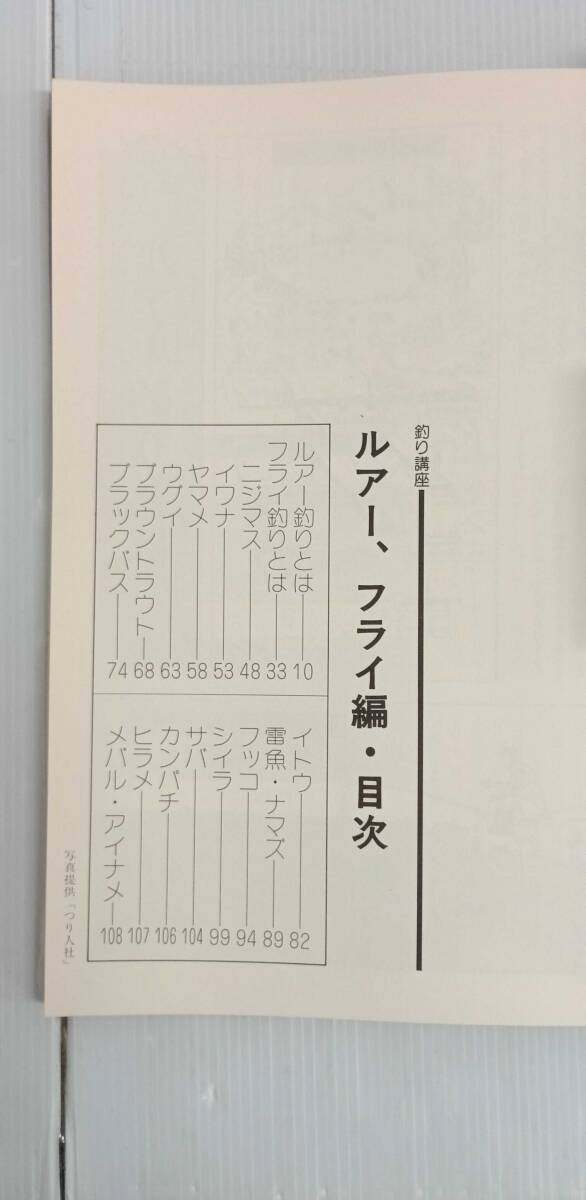 釣り講座
ルアー、フライ編・目次
ルアー釣りとは――10
フライ釣りとは――33
ニジマス――48
イワナ――53
ヤマメ――58
ウグイ――63
ブラウントラウト――68
ブラックバス――74
イトウ――82
雷魚・ナマズ――89
フッコ――94
シイラ――99
サバ――104
カンパチ――106
ヒラメ――107
メバル・アイナメ――108
写真提供「つり人社」